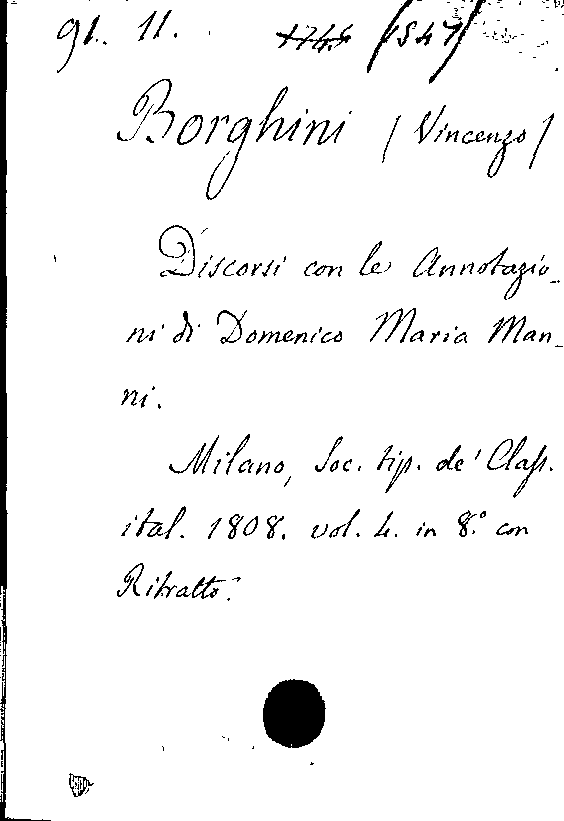 91. 11. 1745 (1547)
Borghini (Vincenzo)
Discorsi con le Annotazio_
ni di Domenico Maria Man_
ni.
Milano, Soc. tip. de' Class.
ital. 1808. vol. 4. in 8.° con
Ritratto.